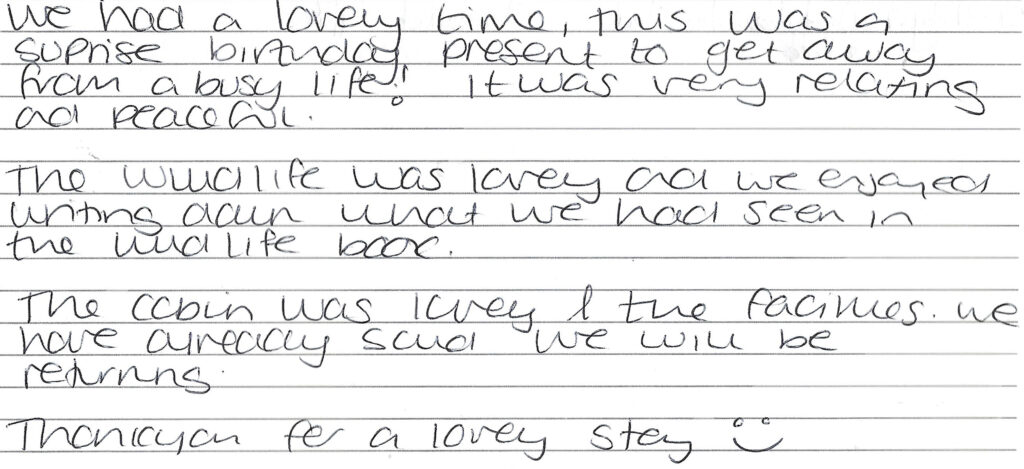 We had a lovely time, this was a
suprise birthday present to get away
from a busy life! It was very relaxing
and peaceful.
The wildlife was lovely and we enjoyed
writing down what we had seen in
the wildlife book.
The cabin was lovely & the facilities. we
have already said we will be
returning.
Thankyou for a lovey stay